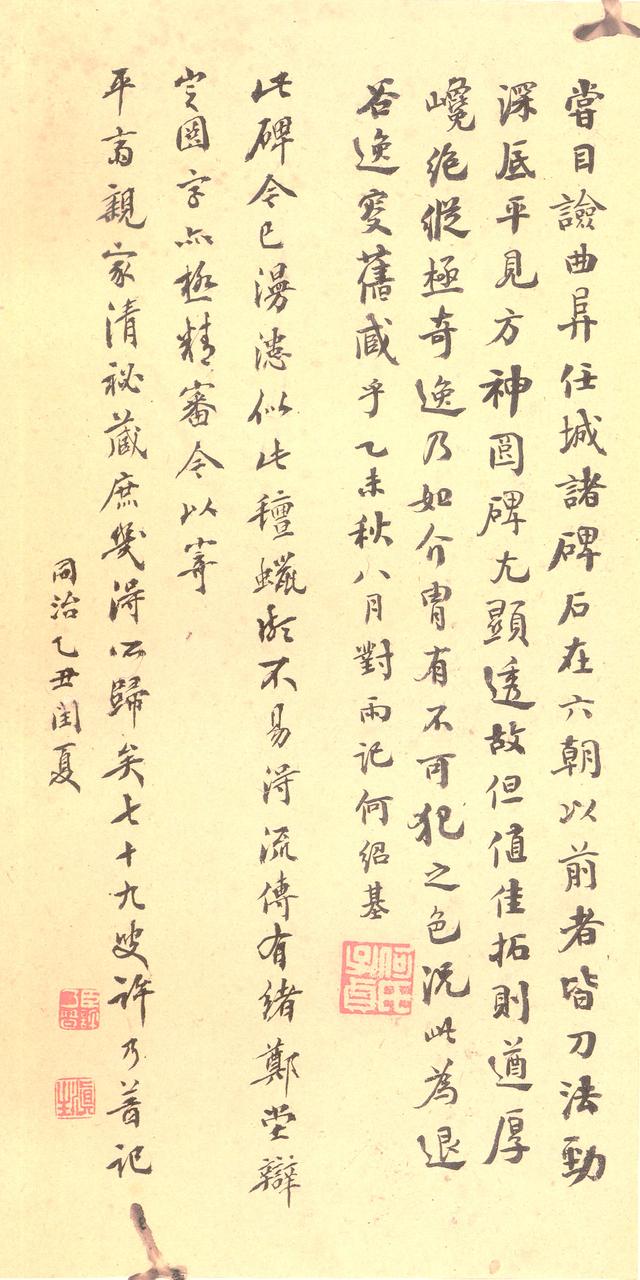 嘗目譣曲阜任城諸碑石在六朝以前者皆刀法勁
深底平見方神圆碑尤顯透故但值佳拓則遒厚
巉絶縱極奇逸乃如介胄有不可犯之色況此為退
谷逸叟舊藏乎乙未秋八月對雨記何紹基
何氏子貞
此碑今已漫漶似此氊蠟斷不易得流傳有緒鄭堂辯
定圆字亦極精審今以寄
平齋親家清祕藏庶幾得所歸矣七十九叟許乃普記
同治乙丑閏夏
臣許乃普
滇生